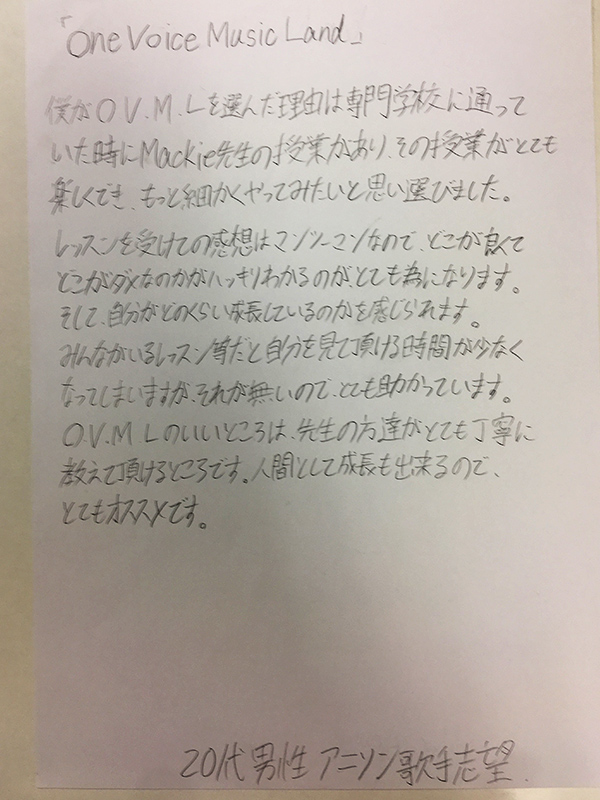 「One Voice Music Land」
僕がO.V.M.Lを選んだ理由は専門学校に通って
いた時にMackie先生の授業があり、その授業がとても
楽しくでき、もっと細かくやってみたいと思い選びました。
レッスンを受けての感想はマンツーマンなので、どこが良くて
どこがダメなのかがハッキリわかるのが、とても為になります。
そして、自分がどのくらい成長しているのかを感じられます。
みんながいるレッスン等だと自分を見て頂ける時間が少なく
なってしまいますが、それが無いので、とても助かっています。
O.V.M Lのいいところは、先生の方達がとても丁寧に
教えて頂けるところです。人間として成長も出来るので、
とてもオススメです。
20代男性 アニソン歌手志望.